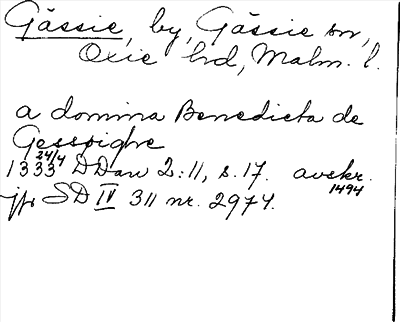 Gässie, by, Gässie sn,
Oxie hd, Malm. l.
a domina Benedicta de
Gessøighe
1333 24/4 DDan 2:11, s. 17. avskr. 1494
jfr SD IV 311 nr. 2974.